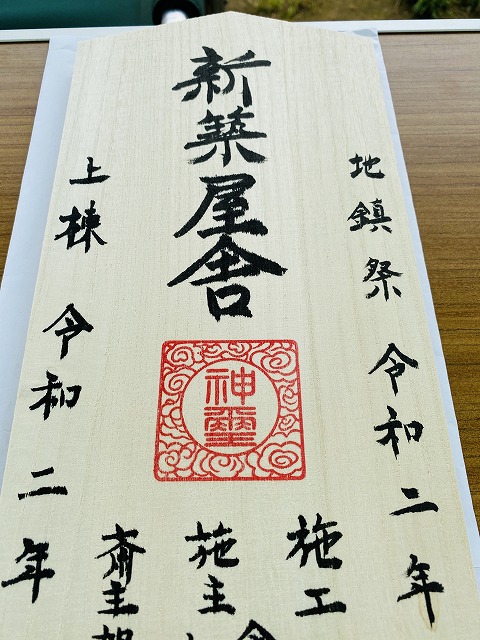 新築屋舎
神璽
地鎮祭 令和二年
上棟 令和二年
施工
施主
斎主